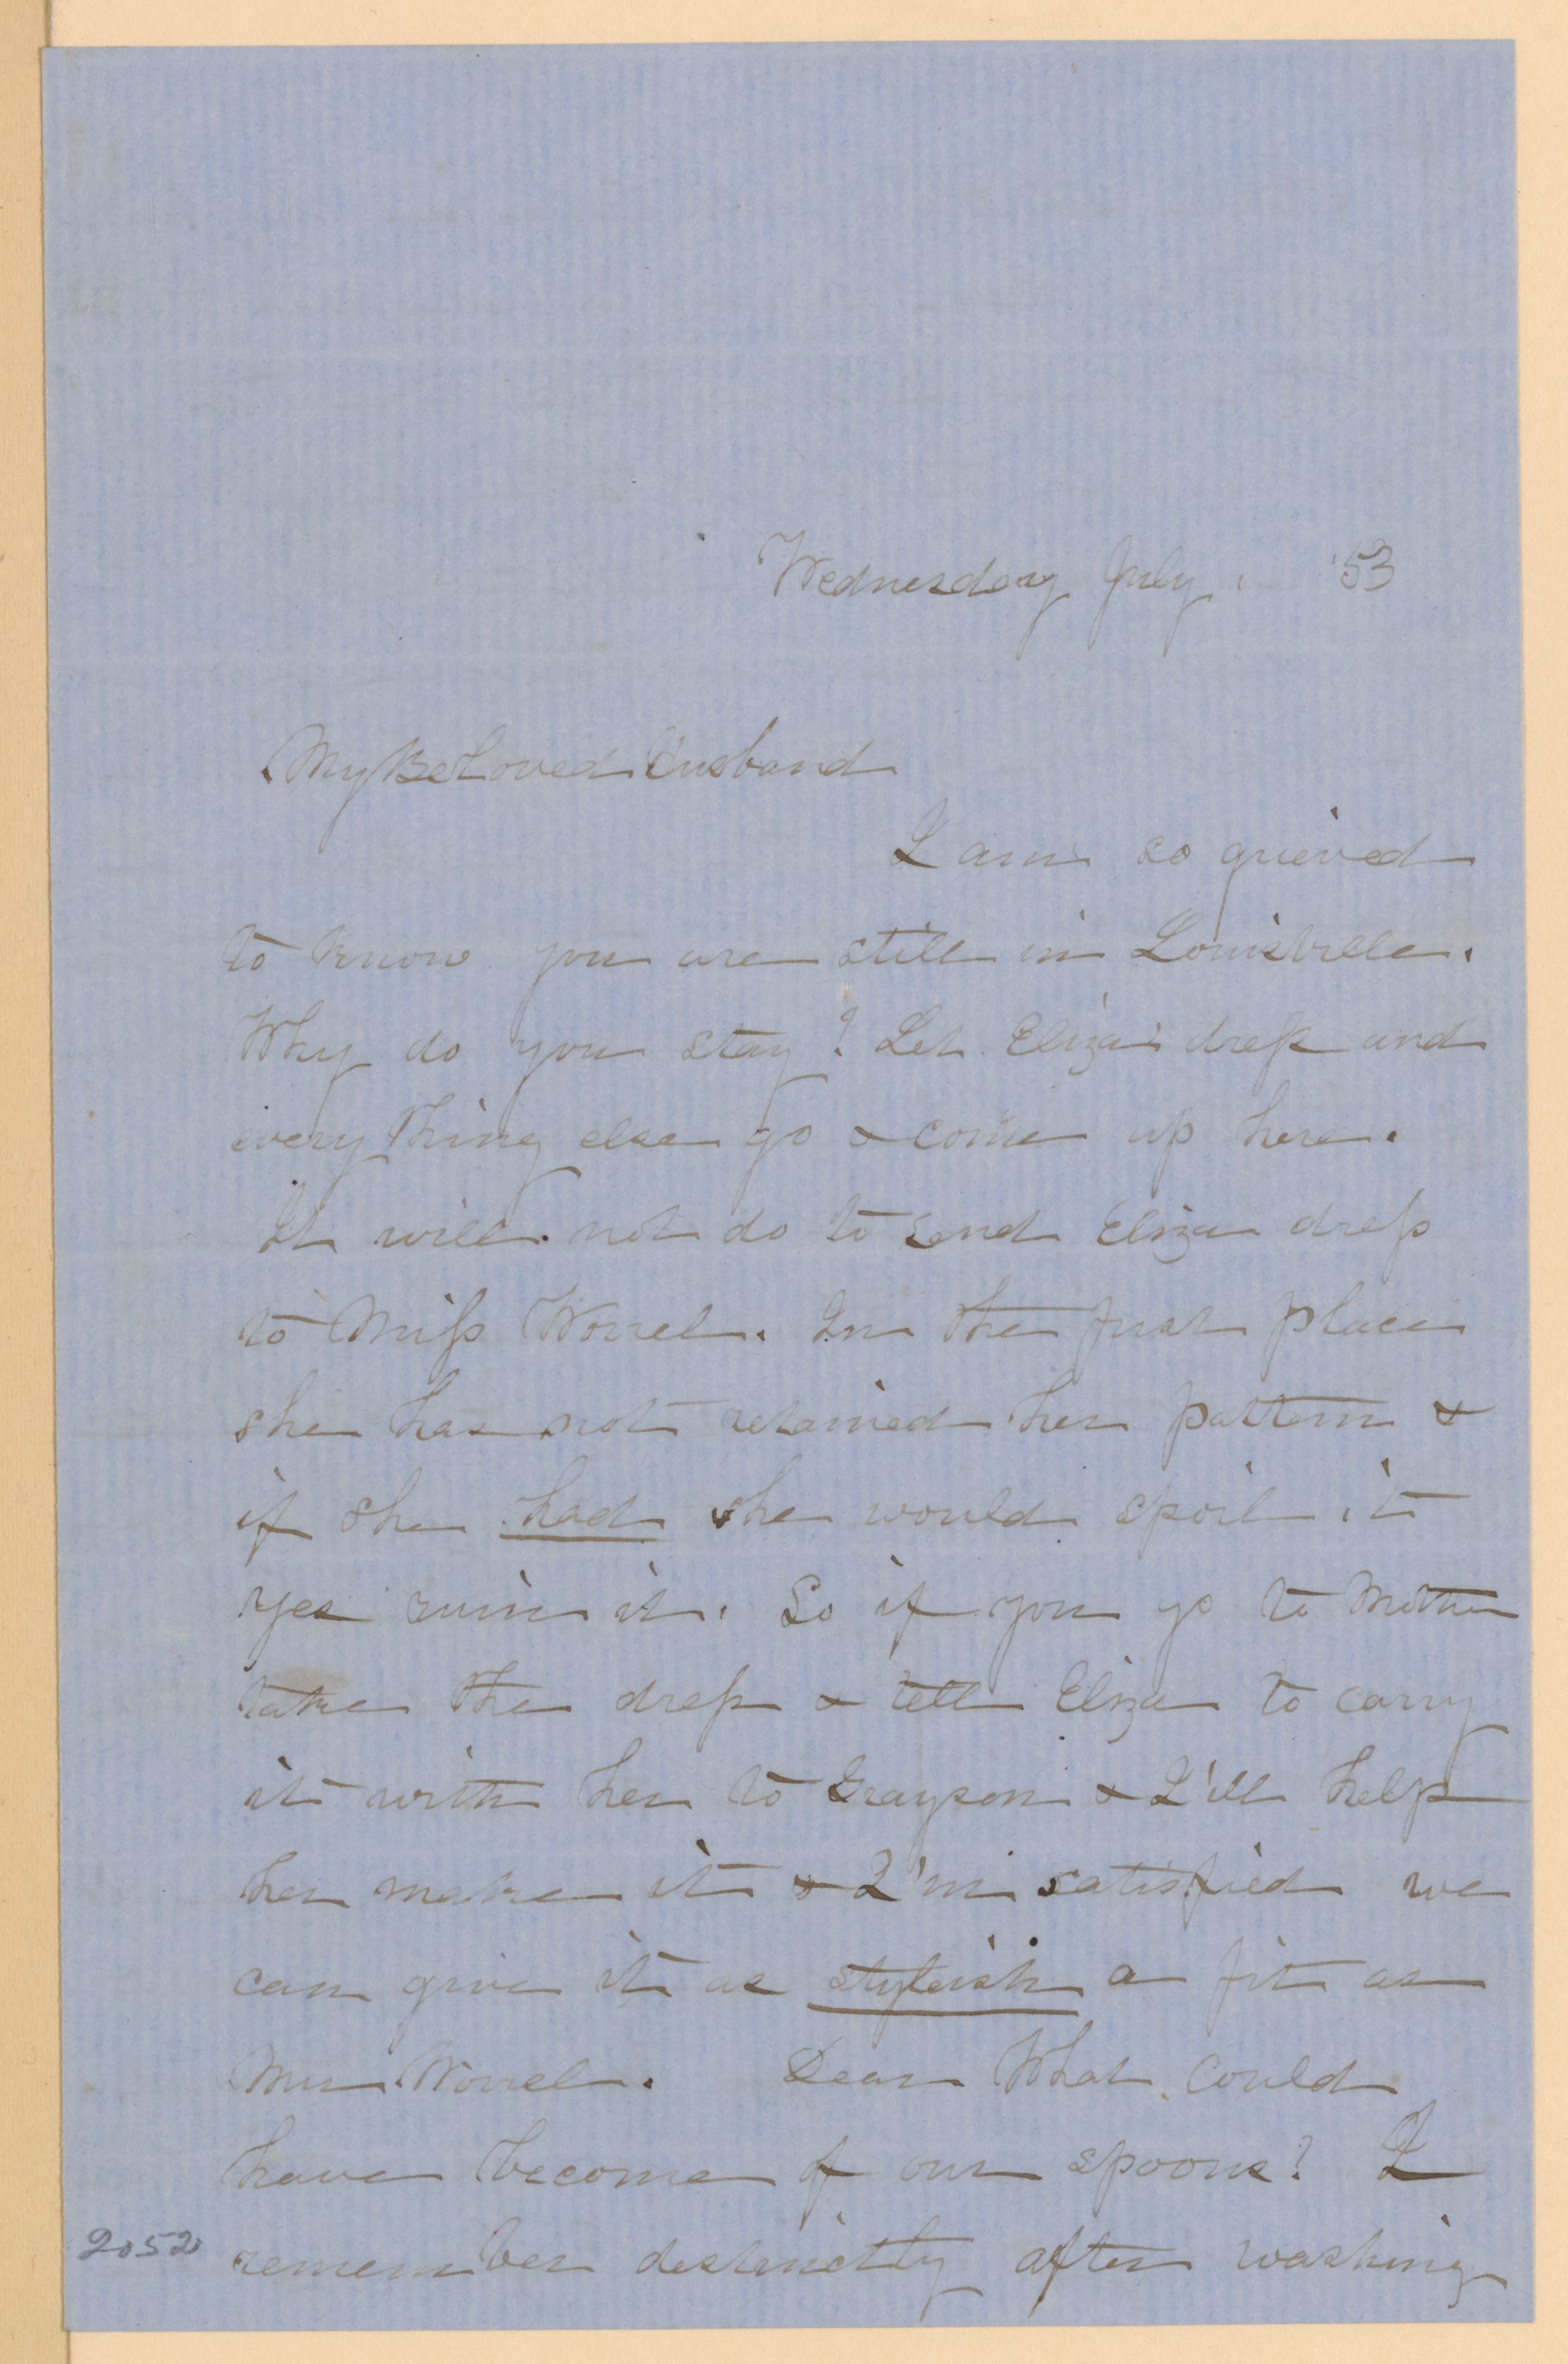 Wednesday July. '53
My Beloved Husband
I am so grieved
to know you are still in Louisville.
Why do you stay? Let Eliza's dress and
every thing else go & come up here.
It will not do to send Eliza dress
to Miss Worrel. In the first place
she has not retained her pattern &
if she had she would spoil it
yes ruin it. So if you go to Mother
take the dress & tell Eliza to carry
it with her to Grayson & I'll help
her make it & I'm satisfied we
can give it as styleish a fit as
Worrel. Dear What could
have become of our spoons? I
remember destinctly after washing
2052